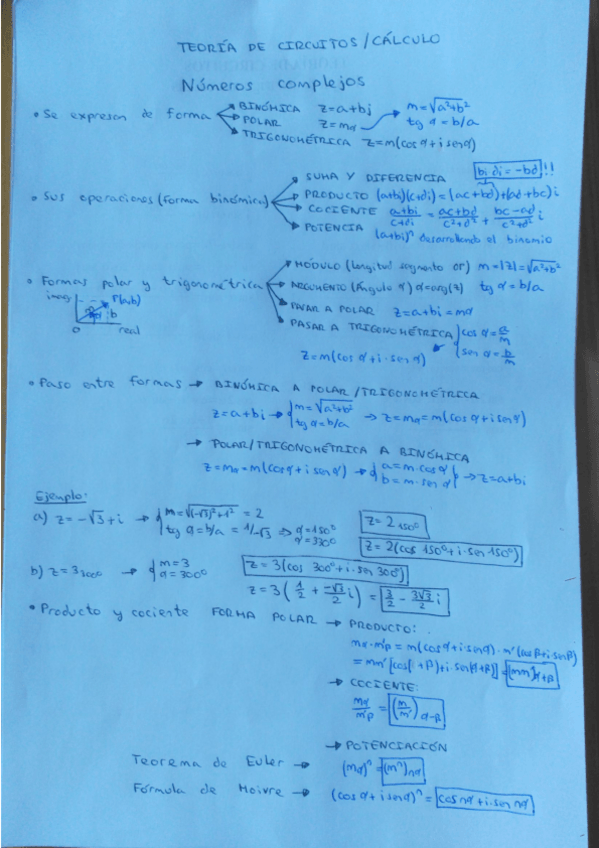 TEORÍA DE CIRCUITOS/CÁLCULO
Números complejos
• Se expresan de forma → BINÓMICA z=a+bi
→ POLAR z=mα → m=√a²+b²
tg α=b/a
→ TRIGONOMÉTRICA z=m(cos α+i sen α)
• Sus operaciones (forma binómica) → SUMA Y DIFERENCIA
bi·di=-bd!!
→ PRODUCTO (a+bi)(c+di)=(ac+bd)+(ad+bc)i
→ COCIENTE a+bi/c+di = ac+bd/c²+d² + bc-ad/c²+d² i
→ POTENCIA (a+bi)ⁿ desarrollando el binomio
• Formas polar y trigonométrica → MÓDULO (longitud segmento or) m=|z|=√a²+b²
→ ARGUMENTO (Ángulo α) α=arg(z) tg α=b/a
→ PASAR A POLAR z=a+bi=mα
→ PASAR A TRIGONOMÉTRICA { cos α=a/m
sen α=b/m
z=m(cos α+i·sen α)
imag r(a,b)
b
0 real
• Paso entre formas → BINÓMICA A POLAR/TRIGONOMÉTRICA
z=a+bi → { m=√a²+b²
tg α=b/a → z=mα=m(cos α+i sen α)
→ POLAR/TRIGONOMÉTRICA A BINÓMICA
z=mα=m(cos α+i sen α) → { a=m·cos α
b=m·sen α } → z=a+bi
Ejemplo:
a) z=-√3+i → { m=√(-√3)²+1² = 2
tg α=b/a = 1/-√3 ⇒ α=150°
α=330°
z=2 150°
z=2(cos 150°+i·sen 150°)
b) z=3 300° → { m=3
α=300°
z=3(cos 300°+i·sen 300°)
z=3(1/2 + -√3/2 i) = 3/2 - 3√3/2 i
• Producto y cociente FORMA POLAR → PRODUCTO:
mα·m'β = m(cos α+i·sen α)·m'(cos β+i·sen β)
=mm'[cos( +β)+i·sen(α+β)]=(mm')α+β
→ COCIENTE:
mα/m'β = (m/m')α-β
→ POTENCIACIÓN
Teorema de Euler → (mα)ⁿ=(mⁿ)nα
Fórmula de Moivre → (cos α+i sen α)ⁿ=cos nα+i·sen nα